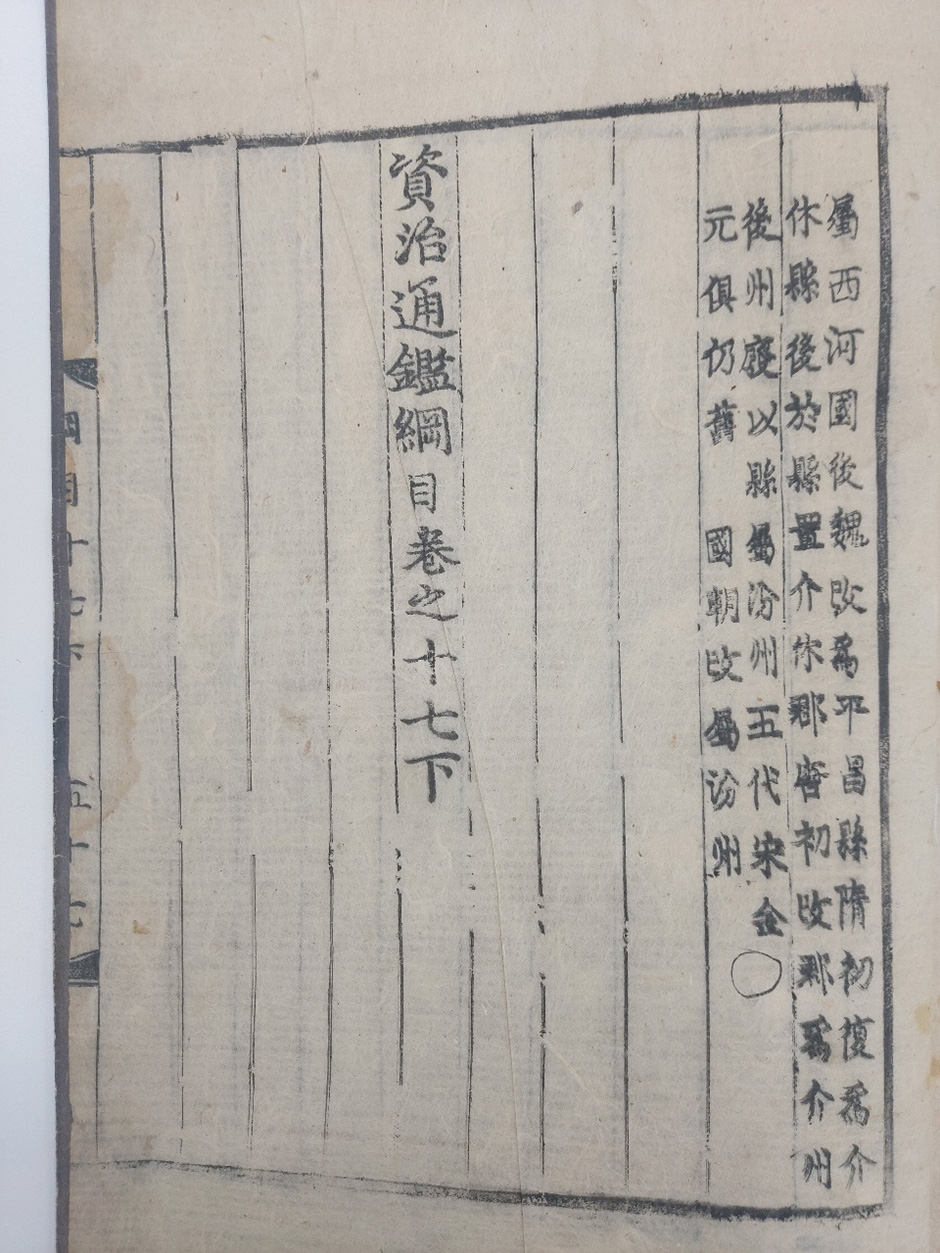 屬西河國後魏改爲平昌縣隋初復爲介
休縣後於縣置介休郡唐初改郡爲介州
後州廢以縣屬汾州五代宋金
元俱仍舊 國朝改屬汾州
資治通鑑綱目卷之十七下
綱目十七下
五十七